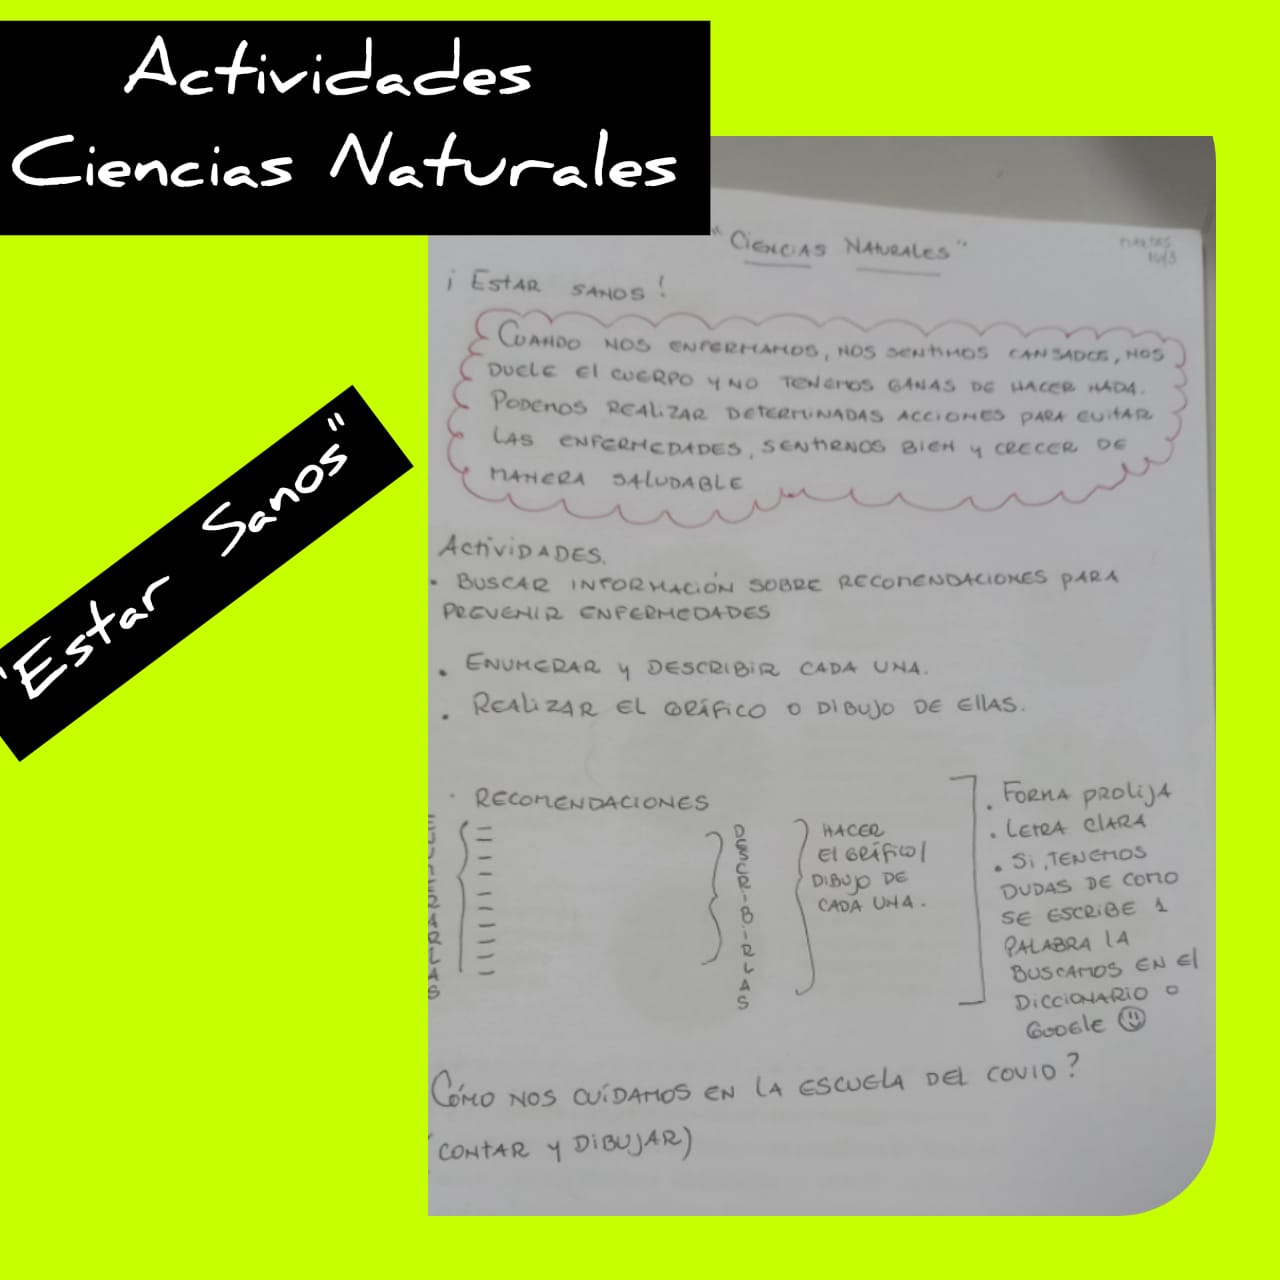 Actividades
Ciencias Naturales
"Estar Sanos"
"CIENCIAS NATURALES"
MARTES
¡ESTAR SANOS!
CUANDO NOS ENFERMAMOS, NOS SENTIMOS CANSADOS, NOS
DUELE El CUERPO Y NO TENEMOS GANAS DE HACER NADA.
PODEMOS REALIZAR DETERMINADAS ACCIONES PARA EVITAR
LAS ENFERMEDADES, SENTIRNOS BIEN Y CRECER DE
MANERA SALUDABLE
ACTIVIDADES.
• BUSCAR INFORMACIÓN SOBRE RECOMENDACIONES PARA
PREVENIR ENFERMEDADES
• ENUMERAR Y DESCRIBIR CADA UNA.
• REALIZAR EL GRÁFICO O DIBUJO DE EllAS.
• RECOMENDACIONES
ENUMERARLAS
DESCRIBIRLAS
HACER
El GRÁFICO/
DIBUJO DE
CADA UNA.
• FORMA PROLIJA
• LETRA CLARA
• Si, TENEMOS
DUDAS DE COMO
SE ESCRIBE 1
PALABRA LA
BUSCAMOS EN El
DICCIONARIO O
GOOGLE
CÓMO NOS CUÍDAMOS EN LA ESCUELA DEL COVID?
(CONTAR Y DIBUJAR)